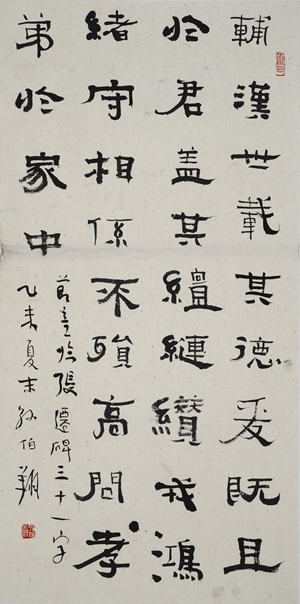 輔漢世載其德爰既且
於君盖其繵縺纘戎鴻
緒守相係不殞高問孝
弟於家中
節意臨張遷碑三十一字
乙未夏末孫伯翔